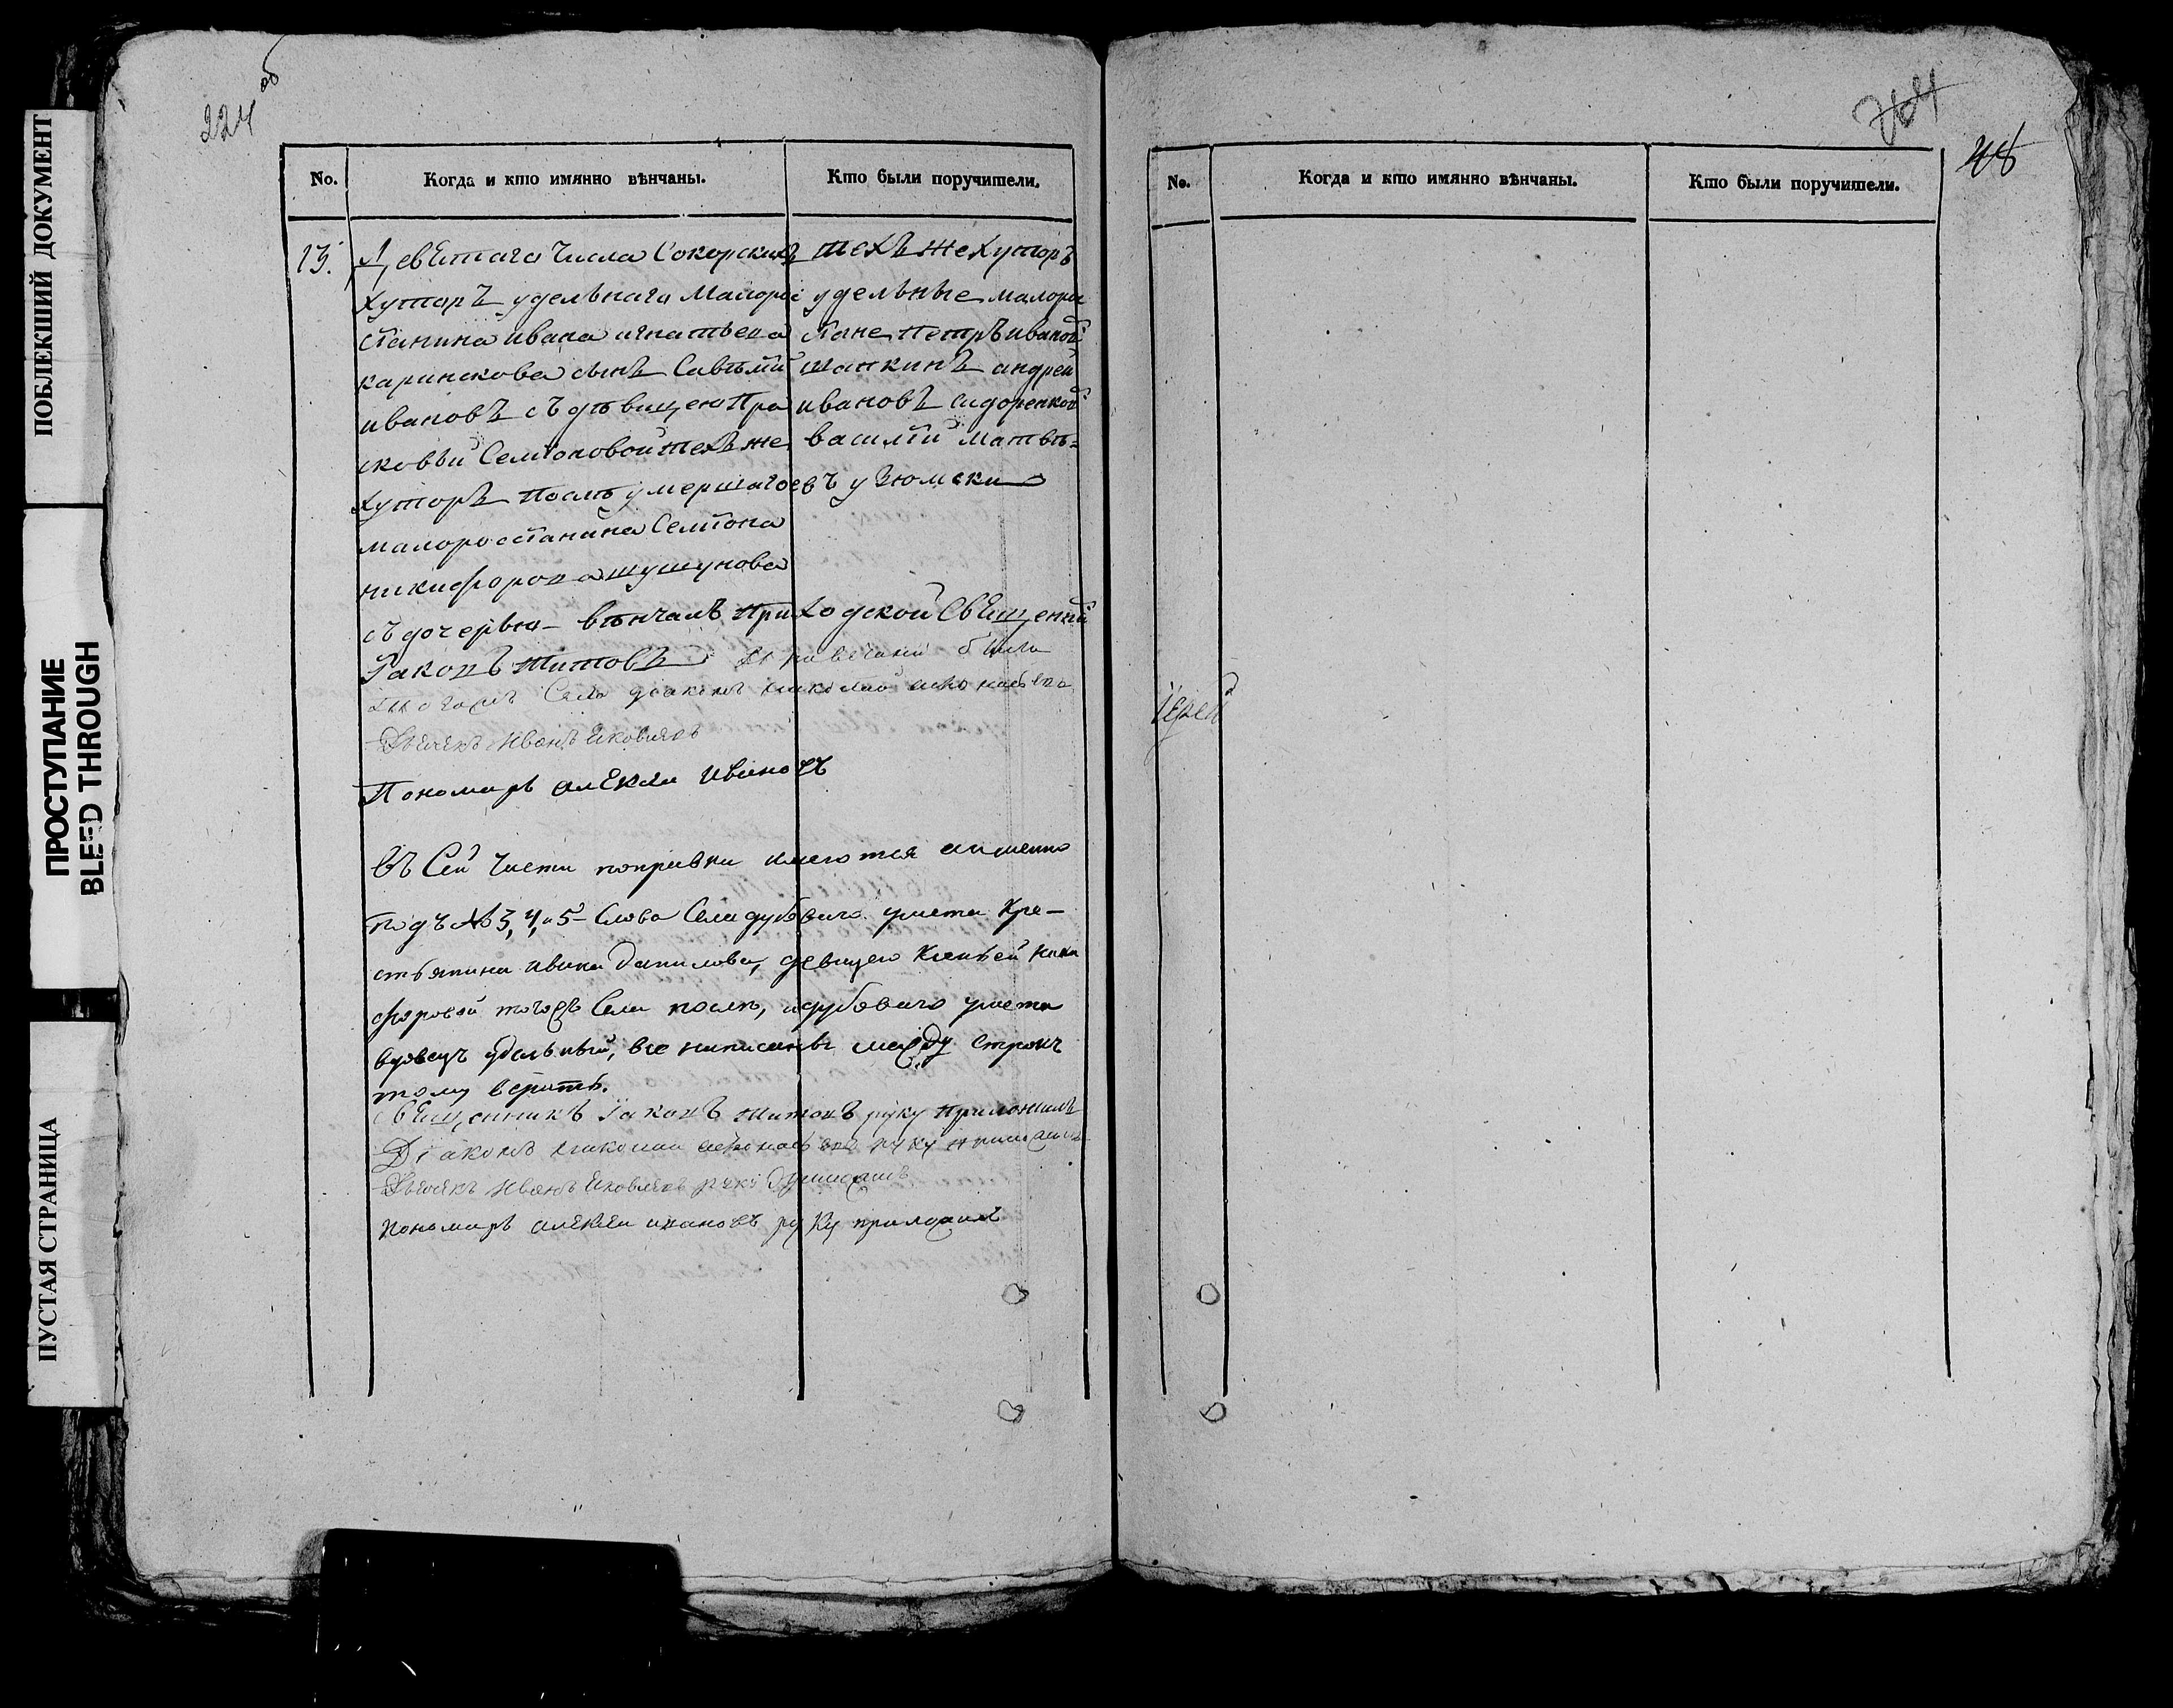 ПОБЛЕКШИЙ ДОКУМЕНТ
ПРОСТУПАНИЕ
BLEED THROUGH
ПУСТАЯ СТРАНИЦА
224 об
No. Когда и кто имянно вѣнчаны. Кто были поручители.
13.
Девятаго числа Сокорскихъ
хуторъ удельнаго Малорос
сіянина ивана игнатьева
каринскова сынъ Савѣлій
ивановъ съ дѣвицею Пра
сковьй Семіоновой техъ же
хуторъ послѣ умершаго
малороссіянина Семіона
никифорова шушунова
съ дочерью – вѣнчалъ приходской Священникъ
Іаковъ Титовъ При венчаніи были
тогожъ Села діаконъ николай
Дьячекъ Иванъ Яковлевъ
Пономарь алексей Ивановъ
техъ же хуторъ
удельные малорос
сіяне Петръ ивановъ
шапкинъ андрей
ивановъ сидоренковъ
василій матвѣ=
евъ узюмски
въ Сей части поправки имеются а именно
подъ № 3, 4, и 5 – слова Села дубоваго умета Кре–
стьянина ивана данилова, девицею Ксеньей ники
форовой тогожъ Села послѣ, дубоваго умета
вдовецъ удѣльный, все написаны между строкъ
тому верить.
Священникъ Іаковъ Титовъ руку приложилъ
Діаконъ николай руку приложилъ
Дьячекъ Иванъ Яковлевъ руку приложилъ
пономарь алексеи ивановъ руку приложилъ
No. Когда и кто имянно вѣнчаны. Кто были поручители.
48
Іерей